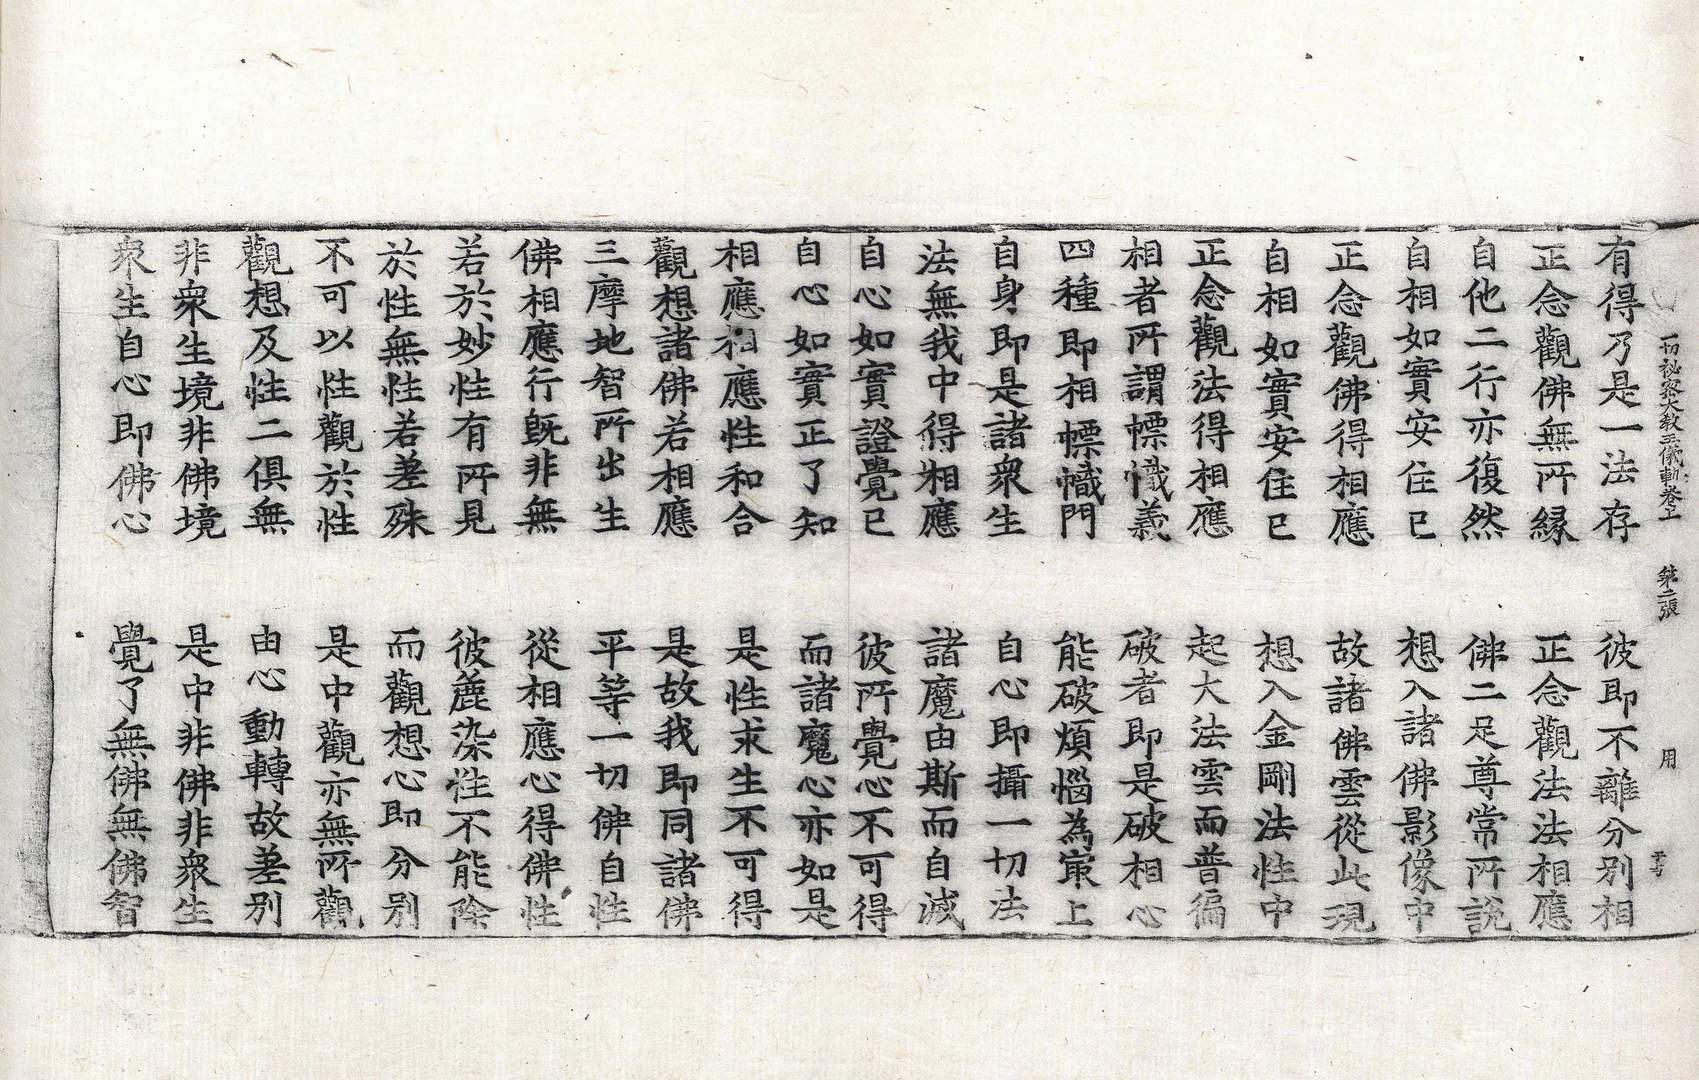 一切祕密大教王儀軌卷上　第二張　用
有得乃是一法存　彼即不離分別相
正念觀佛無所緣　正念觀法法相應
自他二行亦復然　佛二足尊常所說
自相如實安住已　想入諸佛影像中
正念觀佛得相應　故諸佛雲從此現
自相如實安住已　想入金剛法性中
正念觀法得相應　起大法雲而普徧
相者所謂幖幟義　破者即是破相心
四種即相幖幟門　能破煩惱為冣上
自身即是諸衆生　自心即攝一切法
法無我中得相應　諸魔由斯而自滅
自心如實證覺已　彼所覺心不可得
自心如實正了知　而諸魔心亦如是
相應相應性和合　是性求生不可得
觀想諸佛若相應　是故我即同諸佛
三摩地智所出生　平等一切佛自性
佛相應行旣非無　從相應心得佛性
若於妙性有所見　彼麁染性不能除
於性無性若差殊　而觀想心即分別
不可以性觀於性　是中觀亦無所觀
觀想及性二俱無　由心動轉故差別
非衆生境非佛境　是中非佛非衆生
衆生自心即佛心　覺了無佛無佛智